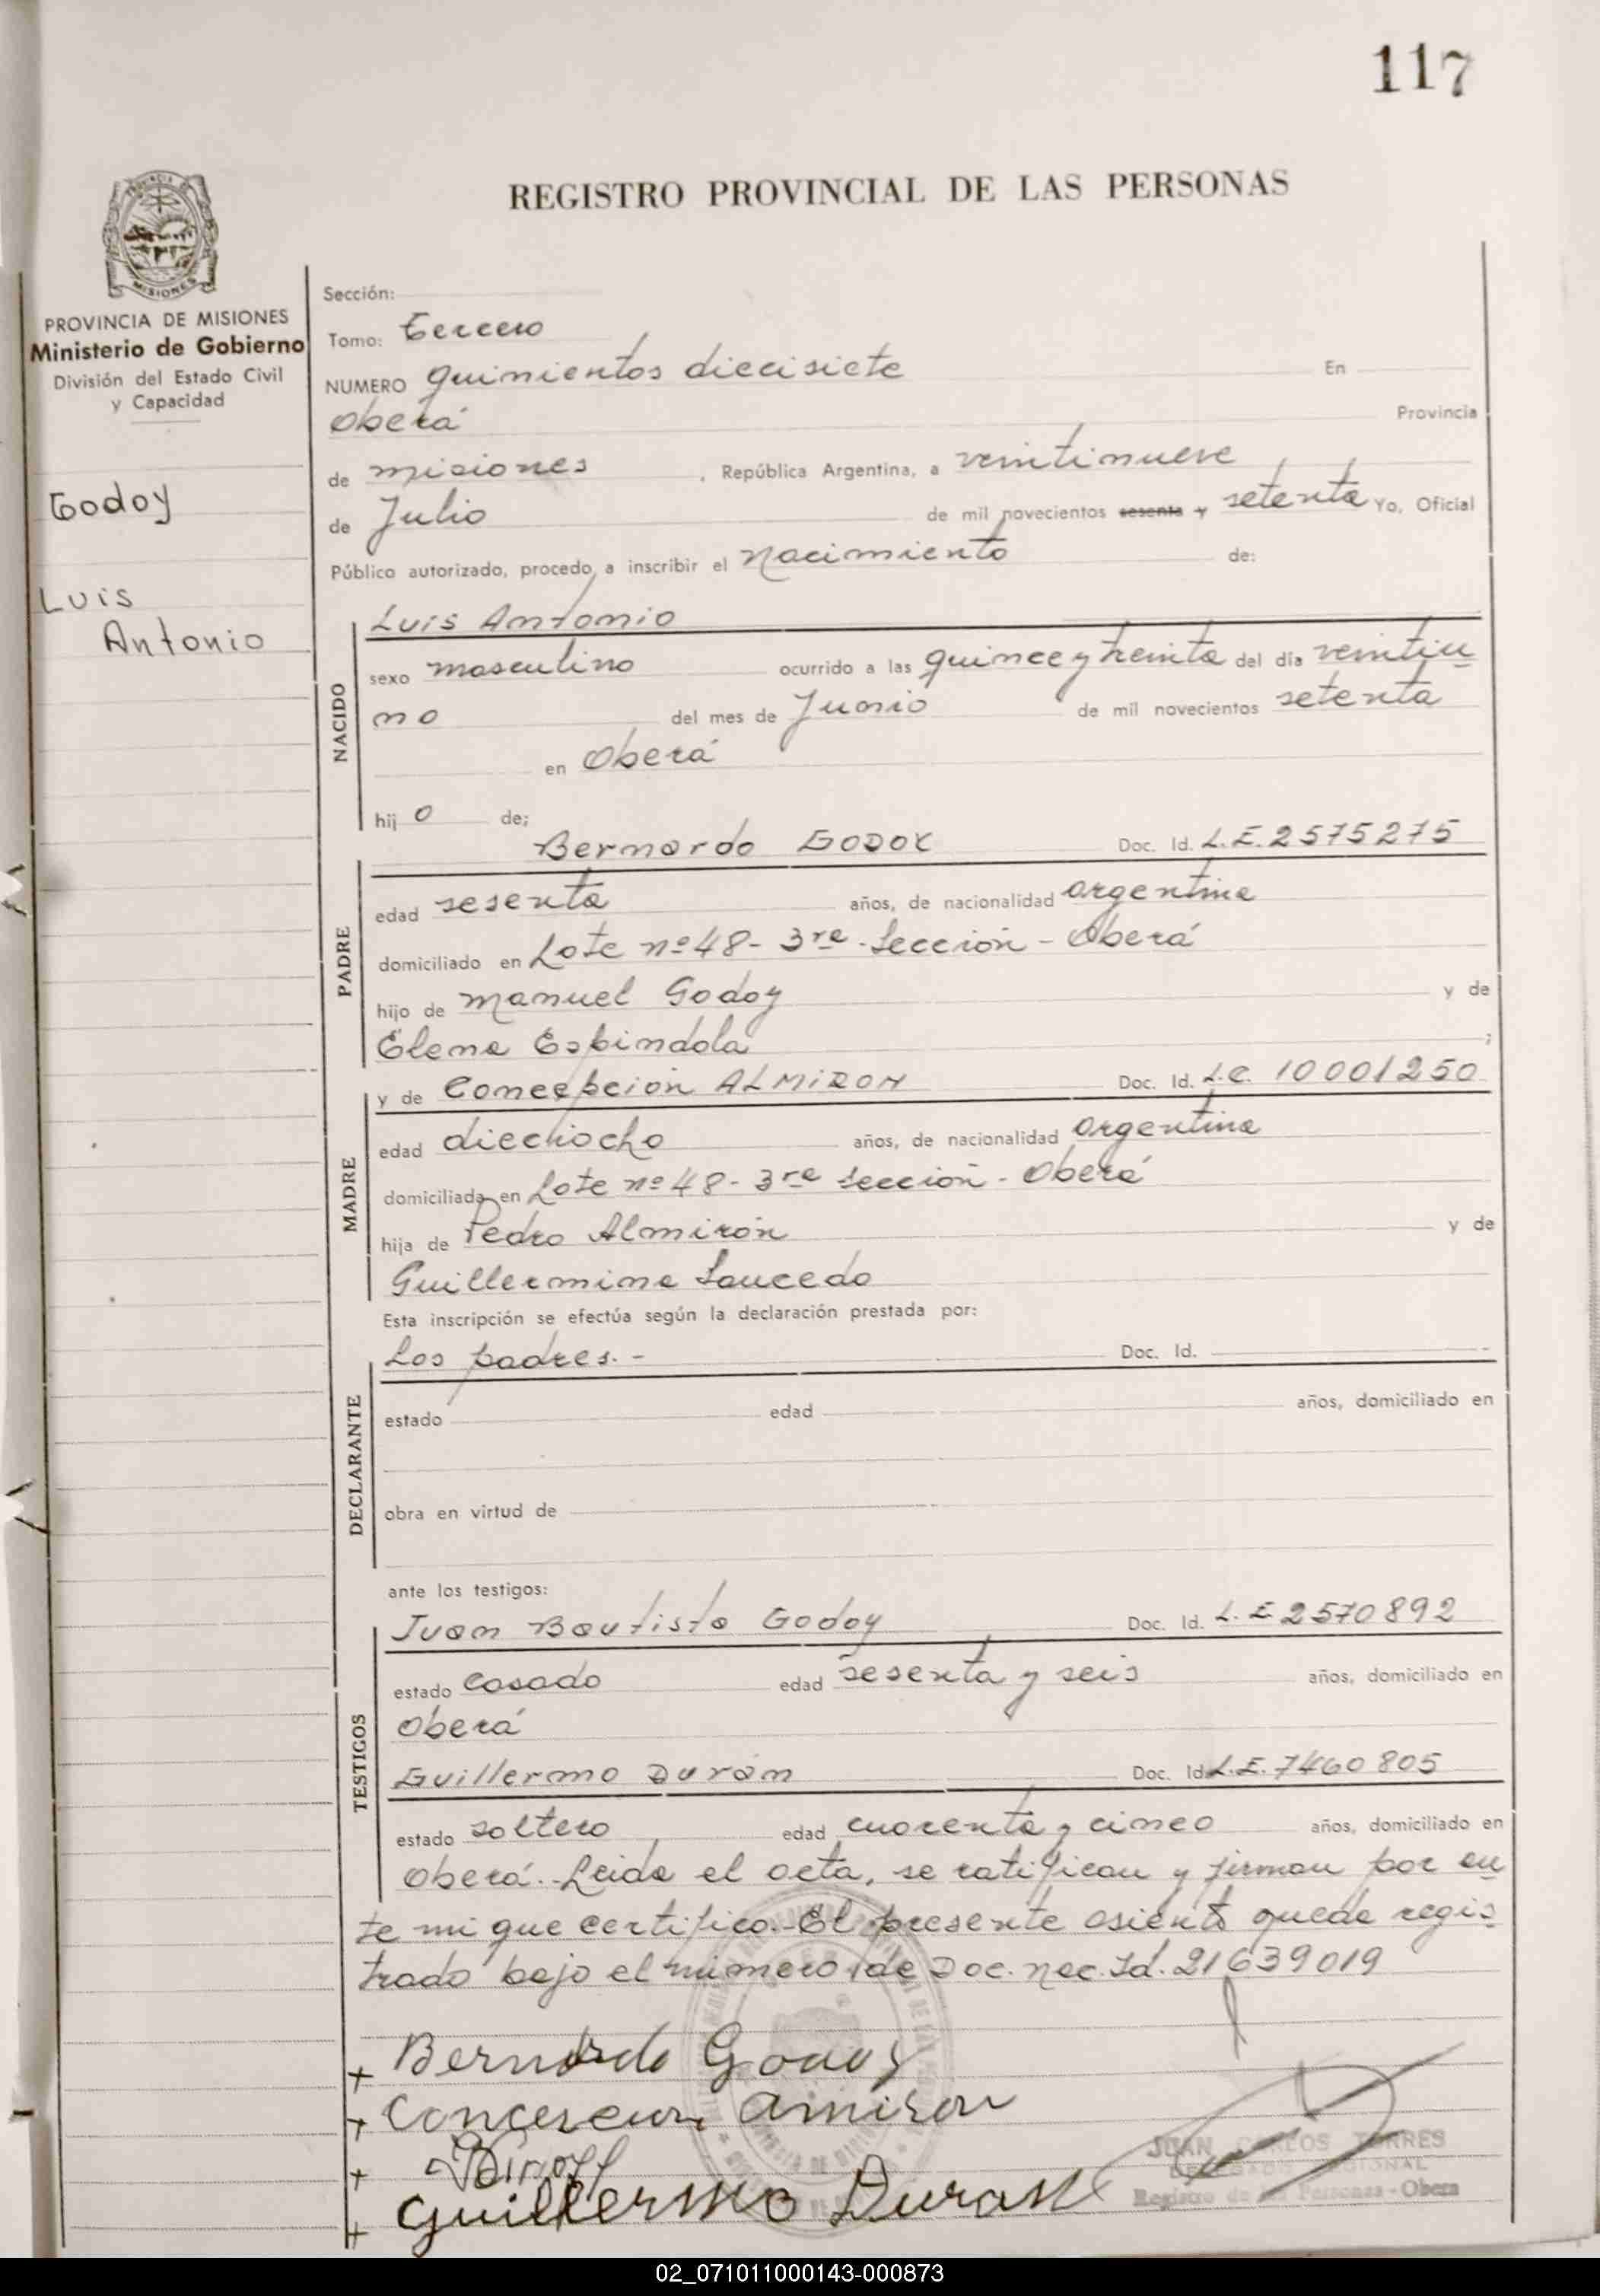 117
REGISTRO PROVINCIAL DE LAS PERSONAS
MISIONES
PROVINCIA DE MISIONES
Ministerio de Gobierno
División del Estado Civil
y Capacidad
Godoy
Luis
Antonio
Sección:
Tomo: Tercero
NUMERO quinientos diecisiete En
Oberá Provincia
de misiones, República Argentina, a veintinueve
de Julio de mil novecientos sesenta y setenta Yo, Oficial
Público autorizado, procedo a inscribir el Nacimiento de:
NACIDO
Luis Antonio
sexo masculino ocurrido a las quince y treinta del día veintiu
no del mes de Junio de mil novecientos setenta
en Oberá
hij o de;
PADRE
Bernardo GODOY Doc. Id. L.E. 2575275
edad sesenta años, de nacionalidad argentina
domiciliado en Lote nº 48 - 3ra. Sección - Oberá
hijo de Manuel Godoy y de
Elena Espindola ;
MADRE
y de Concepción ALMIRON Doc. Id. L.C. 10001250
edad dieciocho años, de nacionalidad argentina
domiciliada en Lote nº 48 - 3ra Sección - Oberá
hija de Pedro Almirón y de
Guillermina Saucedo
Esta inscripción se efectúa según la declaración prestada por:
DECLARANTE
Los padres. - Doc. Id. -
estado edad años, domiciliado en
obra en virtud de
ante los testigos:
TESTIGOS
Juan Bautista Godoy Doc. Id. L.E. 2570892
estado casado edad sesenta y seis años, domiciliado en
Oberá
Guillermo Durán Doc. Id. L.E. 7460805
estado soltero edad cuarenta y cinco años, domiciliado en
Oberá. Leida el acta, se ratifican y firman por an
te mi que certifico. - El presente asiento queda regis
trado bajo el número de Doc. Nac. Id. 21639019
+ Bernardo Godoy
+
+
+ Guillermo Duran
JUAN CARLOS TORRES
DELEGADO REGIONAL
Registro de las Personas - Obera
02_071011000143-000873